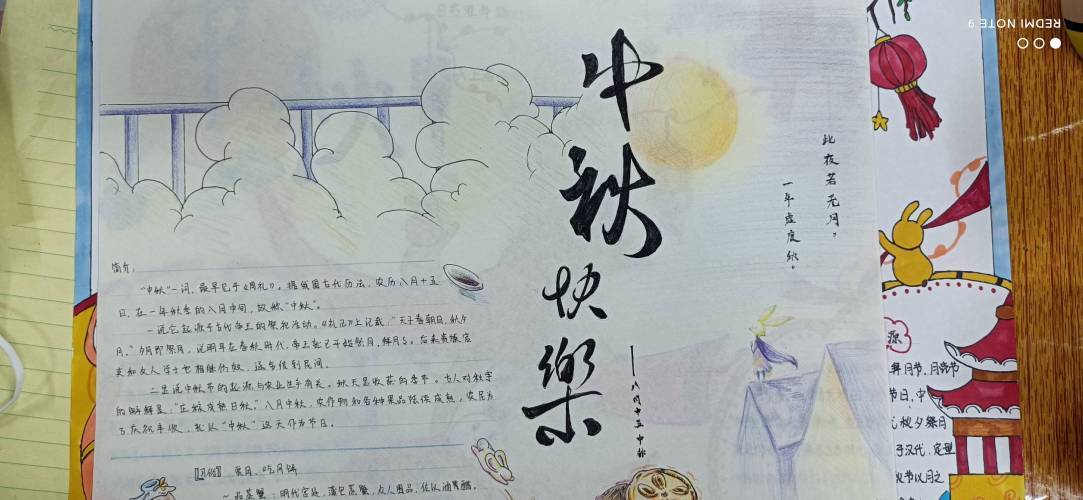 中秋快樂
——八月十五中秋
此夜若无月，
一年虚度秋。
简介：
“中秋”一词，最早见于《周礼》。据我国古代历法，农历八月十五
日，在一年秋季的八月中旬，故称“中秋”。
一说它起源于古代帝王的祭祀活动。《礼记》上记载：“天子春朝日，秋夕
月。”夕月即祭月，说明早在春秋时代，帝王就已开始祭月、拜月了。后来贵族官
吏和文人学士也相继仿效，逐步传到民间。
二是说中秋节的起源与农业生产有关。秋天是收获的季节。古人对秋字
的解释是：“庄稼成熟曰秋。”八月中秋，农作物和各种果品陆续成熟，农民为
了庆祝丰收，就以“中秋”这天作为节日。
【习俗】 赏月、吃月饼
明代宫廷，蒲包蒸蟹，众人围品，佐以油
源
拜月节、月亮节
节日，中
秋夕祭月
于汉代，定型
秋节以月之
REDMI NOTE 9